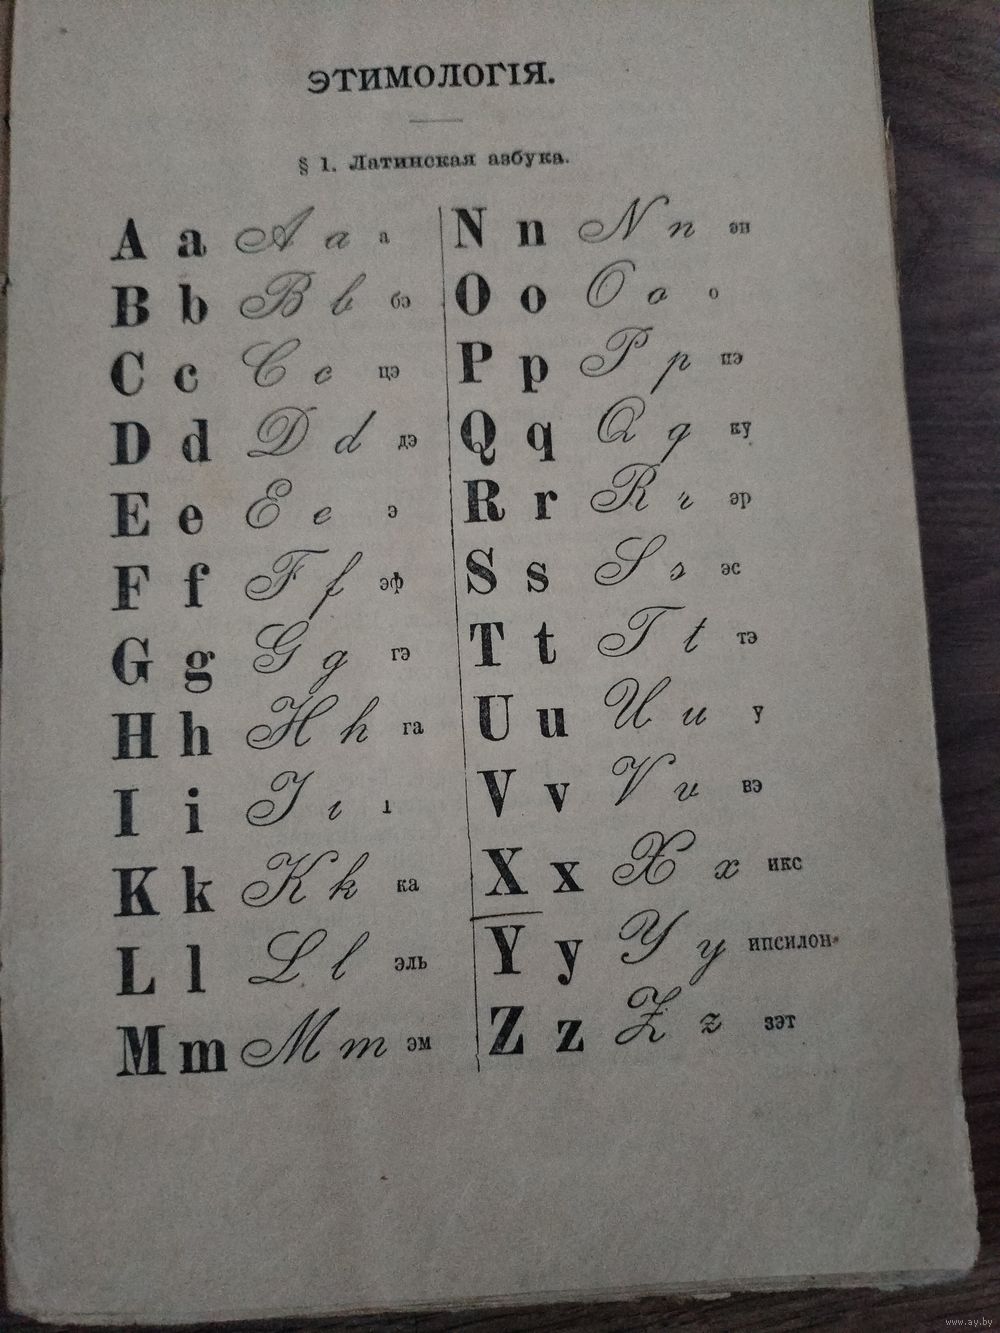 ЭТИМОЛОГІЯ.
§ 1. Латинская азбука.
A a A a а
B b B b бэ
C c C c цэ
D d D d дэ
E e E e э
F f F f эф
G g G g гэ
H h H h га
I i I i і
K k K k ка
L l L l эль
M m M m эм
N n N n эн
O o O o о
P p P p пэ
Q q Q q ку
R r R r эр
S s S s эс
T t T t тэ
U u U u у
V v V v вэ
X x X x икс
Y y Y y ипсилон
Z z Z z зэт
www.ay.by